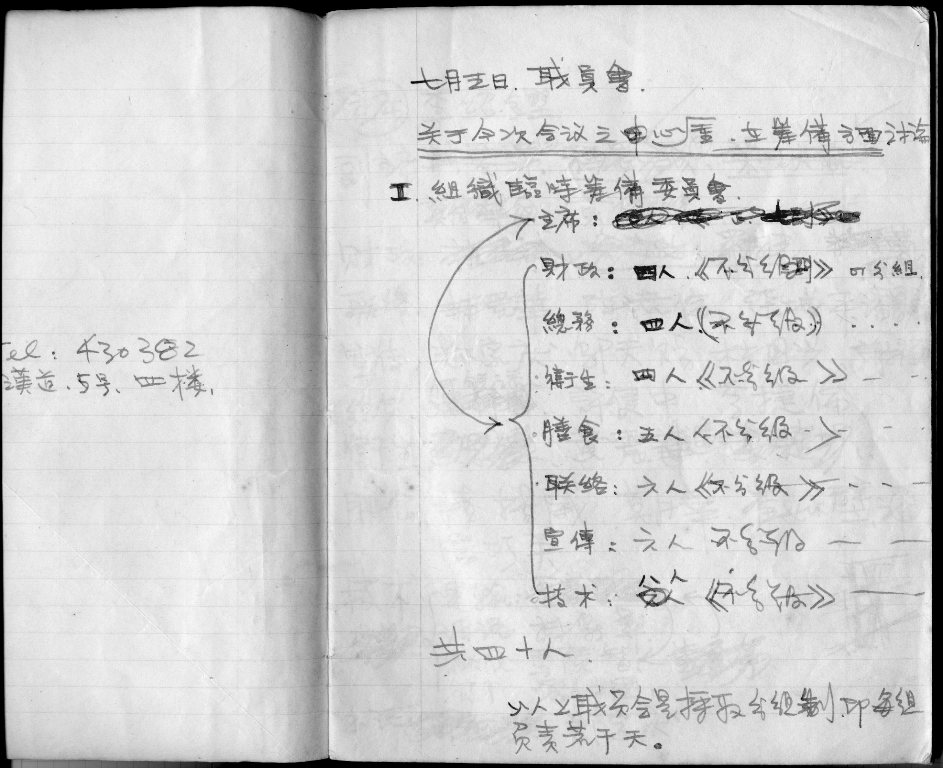 Tel: 430382
漢道.5号.四楼,
七月五日.職員會.
关于今次会议之中心𠮷.在筹備方面讨论
I.組織臨時筹備委員會.
主席:
財政:四人.《不分级別》可分組.
總務:四人.《不分等级》....
衛生:四人《不分级》
膳食:五人《不分级》
联络:六人《不分级》
宣傳:六人 不分等级
技术:人《不分等级》
共四十人.
以上职员会是採取分组制.即每组
负责若干天。